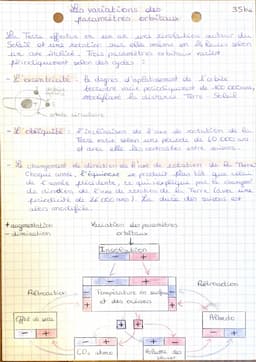 Les variations des
paramètres orbitaux
La Terre effectue en un an une révolution autour du
Soleil et une rotation sur elle même en 24 heures selon
un axe incliné. Trois paramètres orbitaux varient
périodiquement selon des cycles :
- L'excentricité : le degrés d'aplatissement de l'orbite
terrestre varie périodiquement de 100 000 ans,
modifiant la distance Terre - Soleil
orbite circulaire
- L'obliquité : l'inclinaison de l'axe de rotation de la
Terre varie selon une période de
et avec elle des contrastes entre saisons.
- Le changement de direction de l'axe de rotation de la Terre
Chaque année, l'équinoxe se produit plus tôt que celui
de l'année précédente, ce qui s'explique par le changement
de direction de l'axe de rotation de la Terre (avec une
périodicité de ans). La durée des saisons est
alors modifiée.
+ augmentation
- diminution
Variation des paramètres
orbitaux
Insolation
- +
Rétroaction
Rétroaction
- +
Température en surface
et des océans
Effet de serre
- +
Albédo
+ -
CO₂ atmo
- +
+ -